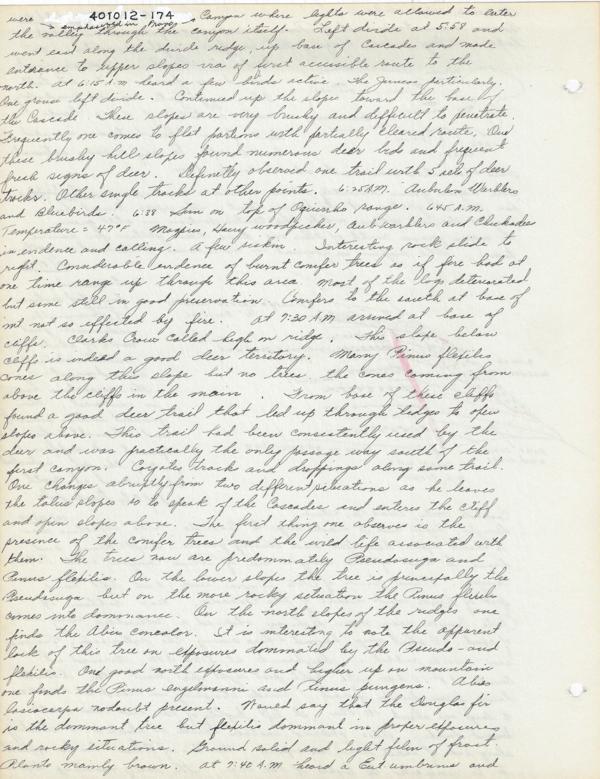 401012-174
were Canyon where lights were allowed to enter
the valley through the canyon itself. Left divide at 5:58 and
went east along the divide ridge, up base of Cascades and made
entrance to upper slopes via of first accessible route to the
north. at 6:15 A.M heard a few birds active. The Juncos particularly.
One grouse left divide. Continued up the slopes toward the base of
the Cascade. These slopes are very brushy and difficult to penetrate.
Frequently one comes to flat portions with partially cleared route. On
these brushy hill slopes found numerous deer beds and frequent
fresh signs of deer. Definitely observed one trail with 5 sets of deer
tracks. Other single tracks at other points. 6:25 A.M. Audubon Warblers
and Bluebirds. 6:38 Sun on top of Oquirrho range. 6:45 A.M.
Temperature = 47°F Magpies, Hairy woodpecker, Aud warblers and Chickadees
in evidence and calling. A few siskin. Interesting rock slide to
right. Considerable evidence of burnt conifer trees as if fire had at
one time range up through this area. Most of the logs deteriorated
but some still in good preservation. Conifers to the south at base of
mt not so effected by fire. At 7:30 A.M arrived at base of
cliffs. Clarks Crow called high on ridge. This slope below
cliffs is indeed a good deer territory. Many Pinus flexilis
cones along this slope but no trees the cones coming from
above the cliffs in the main. From base of these cliffs
found a good deer trail that led up through ledges to open
slopes above. This trail had been consistently used by the
deer and was practically the only passage way south of the
first canyon. Coyote tracks and droppings along same trail.
One changes abruptly from two different situations as he leaves
the talus slopes so to speak of the Cascades and enters the cliff
and open slopes above. The first thing one observes is the
presence of the conifer trees and the wild life associated with
them. The trees now are predommately Pseudosuga and
Pinus flexilis. On the lower slopes the tree is principally the
Pseudosuga but on the more rocky situation the Pinus flexilis
comes into dommance. On the north slopes of the ridges one
finds the Abies concolor. It is interesting to note the apparent
lack of this tree on exposures dommated by the Pseudo- and
flexilis. On good north exposures and higher up on mountain
one finds the Picus engelmanni and Picus pungens. Abies
lasiocarpa nodoubt present. Would say that the Douglas fir
is the dommant tree but flexilis dommant in proper exposures
and rocky situations. Ground solid and light film of frost.
Plants mainly brown. at 7:40 A.M heard a Eut umbrinus and